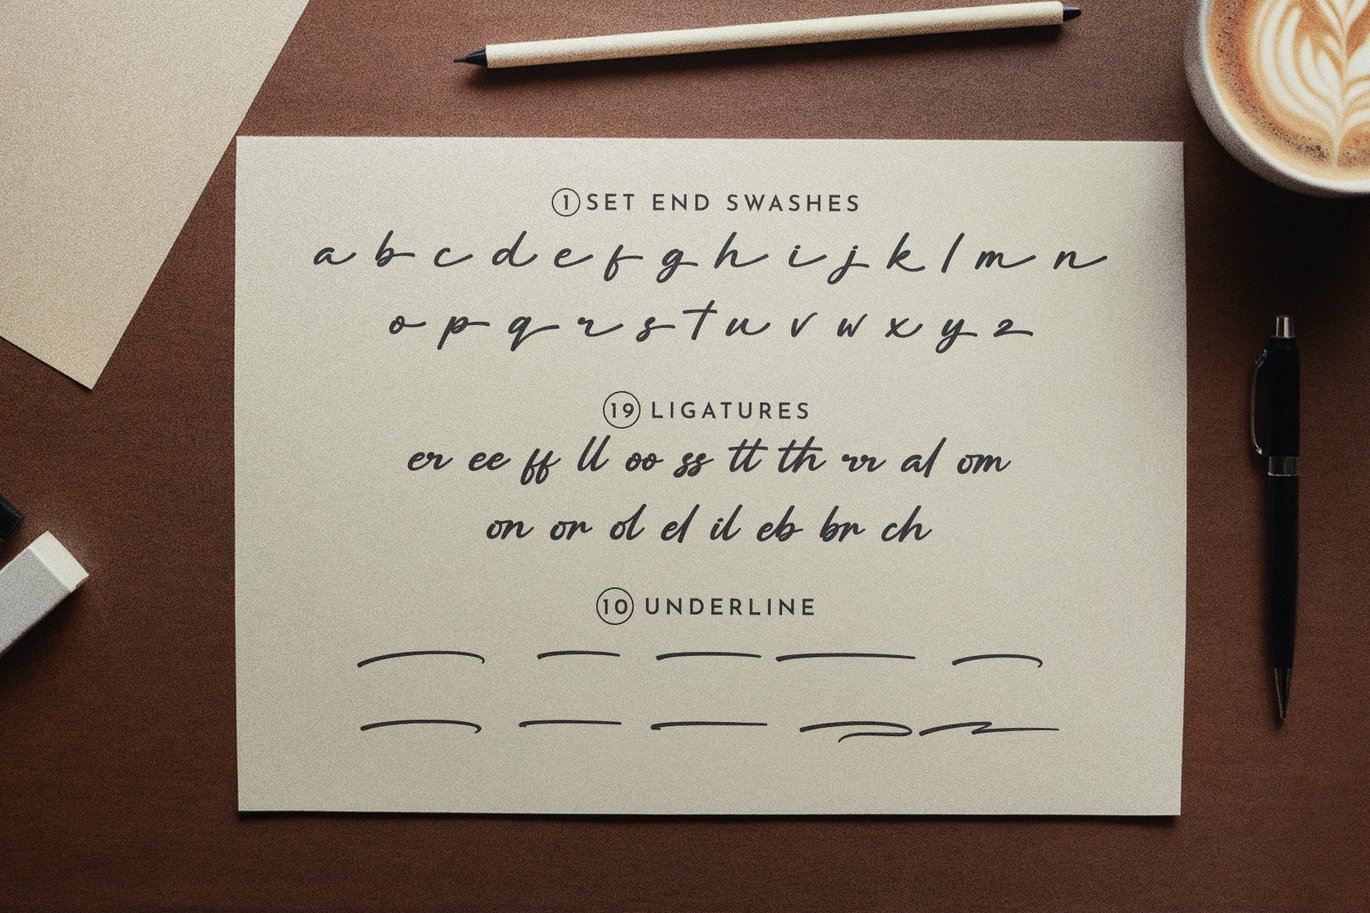 1 SET END SWASHES
a b c d e f g h i j k l m n
o p q r s t u v w x y z
19 LIGATURES
er ee ff ll oo ss tt th rr al om
on or ol el il eb br ch
10 UNDERLINE